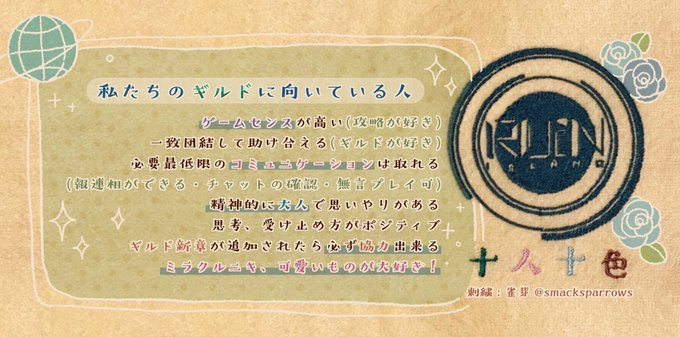 私たちのギルドに向いている人
ゲームセンスが高い(攻略が好き)
一致団結して助け合える(ギルドが好き)
必要最低限のコミュニケーションは取れる
(報連相ができる・チャットの確認・無言プレイ可)
精神的に大人で思いやりがある
思考、受け止め方がポジティブ
ギルド新章が追加されたら必ず協力出来る
ミラクルニキ、可愛いものが大好き!
十人十色
刺繍:雀芽 @smacksparrows